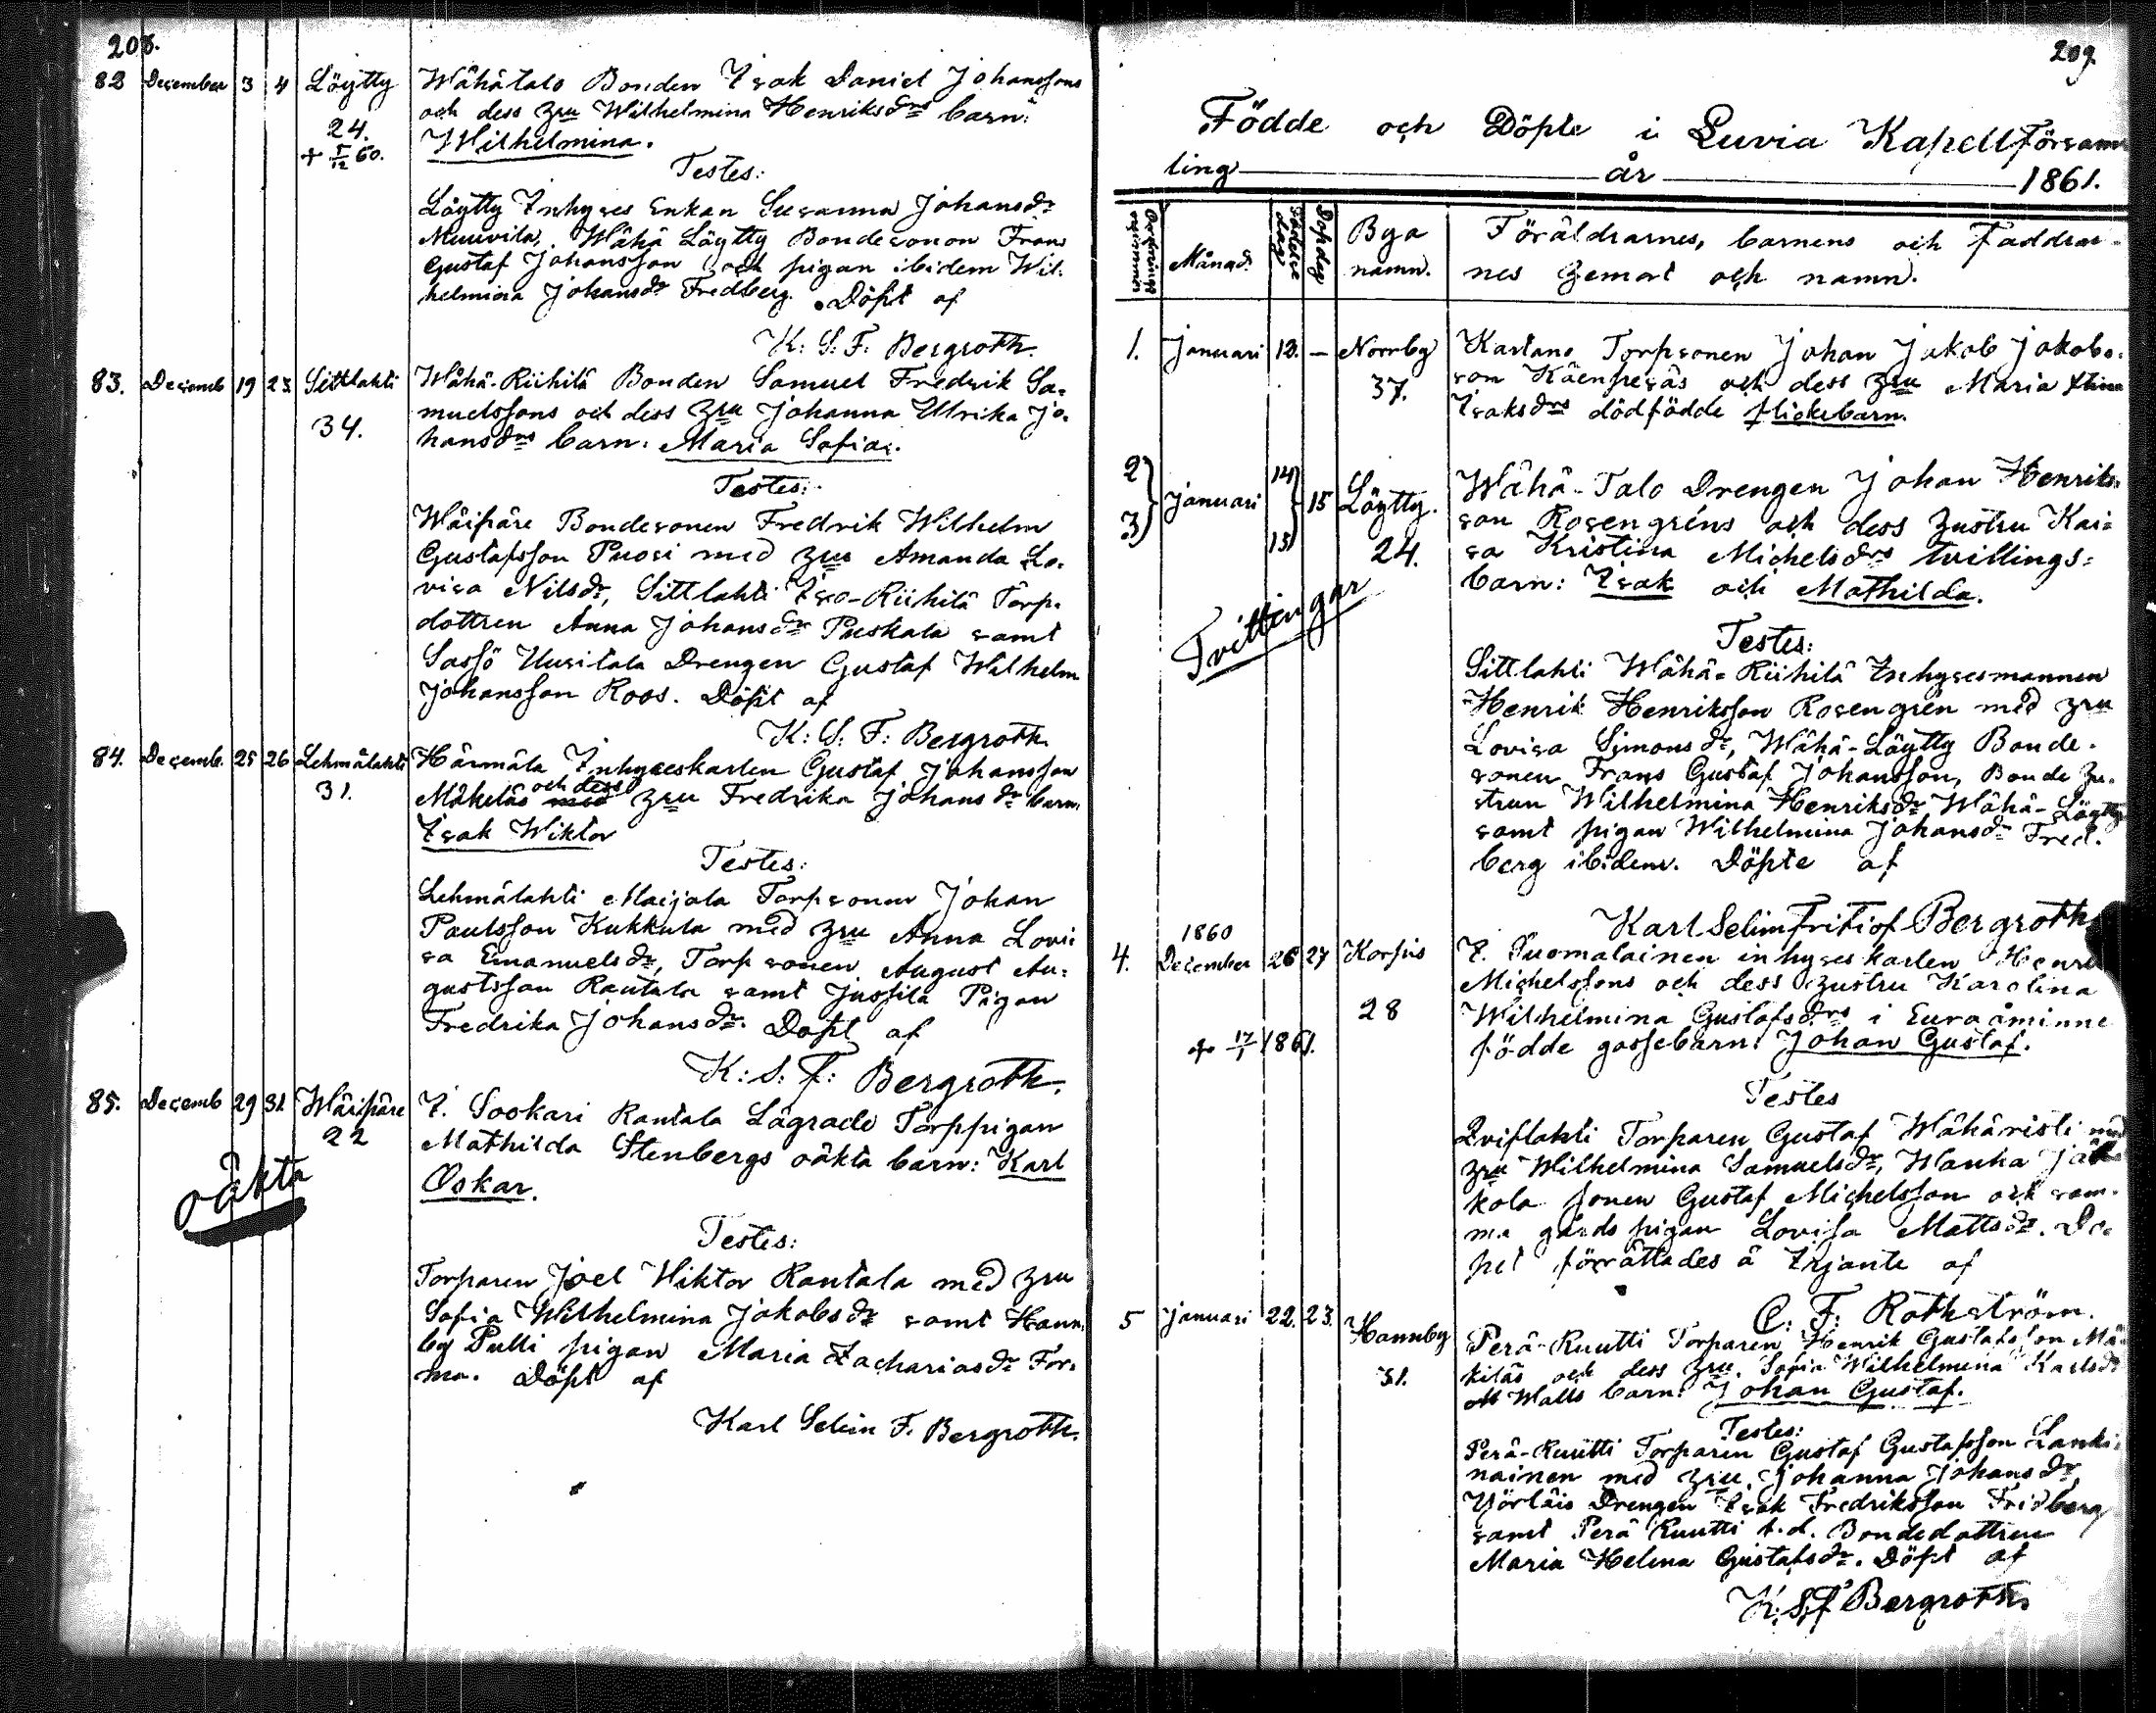 208.
82 December 3 4 Löytty Wähätalo Bonden Isak Daniel Johanssons
och dess hru Wilhelmina Henriksdrs barn:
24. Wilhelmina.
+ 5/12 60.
Testes:
Löytty Inhyses Enkan Susanna Johansdr
Muuvila, Wähä Löytty Bondesonon Frans
Gustaf Johansson och pigan ibidem Wil-
helmina Johansdr Fredberg. Döpt af
K: S: F: Bergroth.
83. Decemb 19 23 Sittlahti Wähä-Riihilä Bonden Samuel Fredrik Sa-
muelssons och dess hru Johanna Ulrika Jo-
34. hansdrs barn: Maria Sofia.
Testes:
Wäipäre Bondesonen Fredrik Wilhelm
Gustafsson Puosi med hru Amanda Lo-
visa Nilsdr, Sittlahti Iso-Riihilä Torp-
dottren Anna Johansdr Puskala samt
Sassö Uusitalo Drengen Gustaf Wilhelm
Johansson Roos. Döpt af
K: S: F: Bergroth.
84. Decemb. 25 26 Lehmälahti Härmälä Inhyseskarlen Gustaf Johansson
31. Mäkeläs med och dess hru Fredrika Johansdr barn
Isak Wiktor
Testes:
Lehmälahti Maijala Torpsonen Johan
Paulsson Kukkula med hru Anna Lovi-
sa Emanuelsdr, Torpsonen August Au-
gustsson Rantala samt Jussila Pigan
Fredrika Johansdr. Döpt af
K: S: F: Bergroth.
85. Decemb 29 31 Wäipäre I. Sookari Rantala Lägrade Torppigan
22 Mathilda Stenbergs oäkta barn: Karl
oäkta Oskar.
Testes:
Torparen Joel Wiktor Rantala med hru
Sofia Wilhelmina Jakobsdr samt Hann-
by Pulli pigan Maria Zachariasdr For-
ma. Döpt af
Karl Selim F. Bergroth.
209.
Födde och Döpte i Luvia Kapellförsam-
ling år 1861.
Ordnings nummer Månad. Födelse dag Dopdag Bya namn. Föräldrarnes, barnens och Faddrar-
nes hemort och namn.
1. Januari 13. — Norrby Karlano Torpsonen Johan Jakob Jakobs-
37. son Käenpesäs och dess hru Maria Stina
Isaksdrs dödfödde flickebarn.
2 3 Januari 14 15 15 Löytty. Wähä-Talo Drengen Johan Henriks-
son Rosengréns och dess hustru Kai-
24. sa Kristina Michelsdrs tvillings-
barn: Isak och Mathilda.
Tvillingar
Testes:
Sittlahti Wähä-Riihilä Inhysesmannen
Henrik Henriksson Rosengrén med hru
Lovisa Simonsdr, Wähä-Löytty Bonde-
sonen Frans Gustaf Johansson, Bonde hu-
strun Wilhelmina Henriksdr Wähä-Löytty
samt pigan Wilhelmina Johansdr Fred-
berg ibidem. Döpte af
Karl Selim Fritiof Bergroth
1860
4. December 26 27 Korpis I. Suomalainen inhyseskarlen Henrik
Michelssons och dess hustru Karolina
28 Wilhelmina Gustafsdrs i Euraåminne
+ 17/1 1861. födde gossebarn: Johan Gustaf.
Testes
Qviflahti Torparen Gustaf Wähäristi med
hru Wilhelmina Samuelsdr, Wanha
kola sonen Gustaf Michelsson och sam-
ma gårds pigan Lovisa Mattsdr. Do-
pet förrättades å Irjante af
C. F. Rothström.
5 Januari 22. 23. Hannby Perä-Ruutti Torparen Henrik Gustafsson Mä-
31. kiläs och dess hru Sofia Wilhelmina Karlsdr
barn: Johan Gustaf.
Testes:
Perä-Ruutti Torparen Gustaf Gustafsson Lanki-
nainen med hru Johanna Johansdr,
Yörläis Drengen Isak Fredriksson Fridberg
samt Perä Ruutti t.d. Bondedottren
Maria Helena Gustafsdr. Döpt af
K. S. F Bergroth.